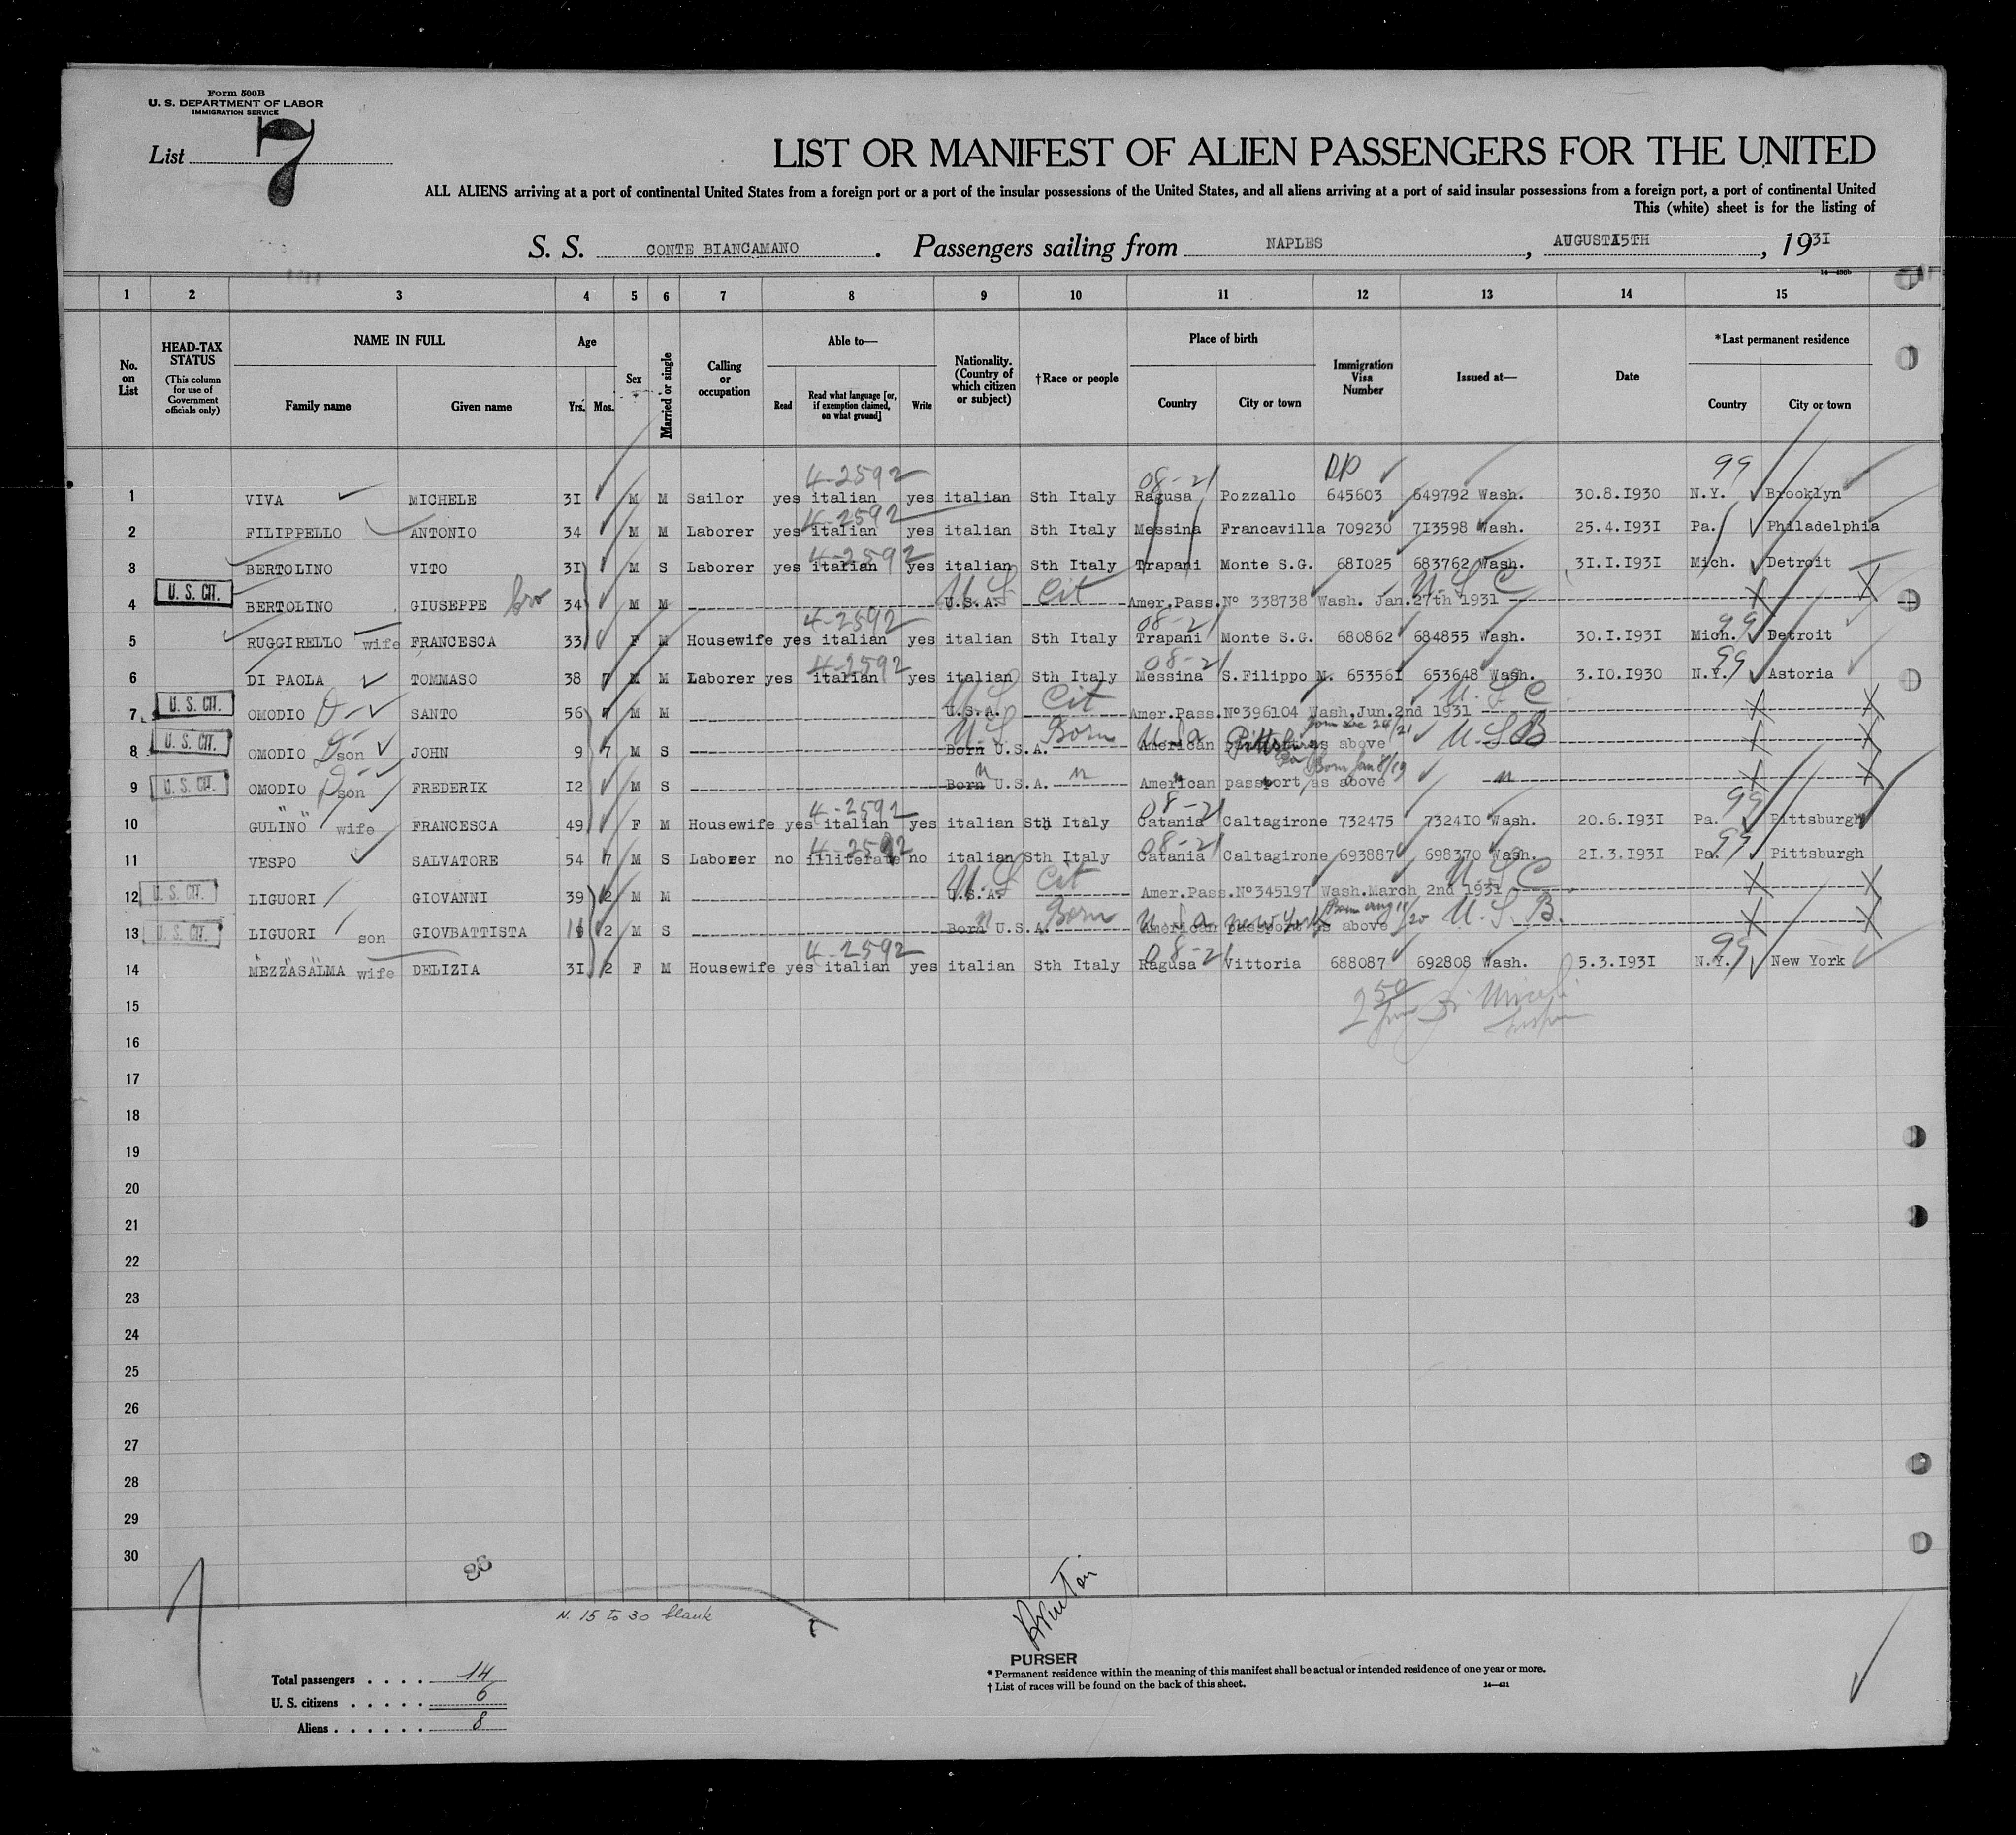 Form 500B
U. S. DEPARTMENT OF LABOR
IMMIGRATION SERVICE
List 7
LIST OR MANIFEST OF ALIEN PASSENGERS FOR THE UNITED
ALL ALIENS arriving at a port of continental United States from a foreign port or a port of the insular possessions of the United States, and all aliens arriving at a port of said insular possessions from a foreign port, a port of continental United
This (white) sheet is for the listing of
S. S. CONTE BIANCAMANO. Passengers sailing from NAPLES, AUGUST 15TH, 1931
14—430b
1 2 3 4 5 6 7 8 9 10 11 12 13 14 15
No. on List
HEAD-TAX STATUS
(This column for use of Government officials only)
NAME IN FULL
Family name Given name
Age
Yrs. Mos.
Sex
Married or single
Calling or occupation
Able to—
Read
Read what language [or, if exemption claimed, on what ground]
Write
Nationality. (Country of which citizen or subject)
†Race or people
Place of birth
Country City or town
Immigration Visa Number
Issued at—
Date
*Last permanent residence
Country City or town
4-2592 08-21 DP 99
1 VIVA MICHELE 31 M M Sailor yes italian yes italian Sth Italy Ragusa Pozzallo 645603 649792 Wash. 30.8.1930 N.Y. Brooklyn
4-2592
2 FILIPPELLO ANTONIO 34 M M Laborer yes italian yes italian Sth Italy Messina Francavilla 709230 713598 Wash. 25.4.1931 Pa. Philadelphia
4-2592
3 BERTOLINO VITO 31 M S Laborer yes italian yes italian Sth Italy Trapani Monte S.G. 681025 683762 Wash. 31.1.1931 Mich. Detroit
U. S. CIT. bro U S Cit U. S C
4 BERTOLINO GIUSEPPE 34 M M U.S.A. Amer.Pass.Nº 338738 Wash. Jan.27th 1931
4-2592 08-21 99
5 RUGGIRELLO wife FRANCESCA 33 F M Housewife yes italian yes italian Sth Italy Trapani Monte S.G. 680862 684855 Wash. 30.1.1931 Mich. Detroit
4-2592 08-21 99
6 DI PAOLA TOMMASO 38 7 M M Laborer yes italian yes italian Sth Italy Messina S.Filippo M. 653561 653648 Wash. 3.10.1930 N.Y. Astoria
U. S. CIT. D U S Cit U. S C.
7 OMODIO SANTO 56 7 M M U.S.A. Amer.Pass.Nº396104 Wash.Jun.2nd 1931
U. S. CIT. D U S Born U. S a Pittsburg Pa Born Dec 24/21 U. S B
8 OMODIO son JOHN 9 7 M S Born U.S.A. American passport as above
U. S. CIT. D " " " Born Jan 8/19 "
9 OMODIO son FREDERIK 12 M S Born U.S.A. American passport as above
4-2592 08-21 99
10 GULINO wife FRANCESCA 49 F M Housewife yes italian yes italian Sth Italy Catania Caltagirone 732475 732410 Wash. 20.6.1931 Pa. Pittsburgh
4-2592 08-21 99
11 VESPO SALVATORE 54 7 M S Laborer no illiterate no italian Sth Italy Catania Caltagirone 693887 698370 Wash. 21.3.1931 Pa. Pittsburgh
U. S. CIT. U. S Cit U. S C
12 LIGUORI GIOVANNI 39 2 M M U.S.A. Amer.Pass.Nº345197 Wash.March 2nd 1931
U. S. CIT. " Born U. S a New York Born aug 11/20 U. S. B.
13 LIGUORI son GIOVBATTISTA 2 M S Born U.S.A. American passport as above
4-2592 08-21 99
14 MEZZASALMA wife DELIZIA 31 2 F M Housewife yes italian yes italian Sth Italy Ragusa Vittoria 688087 692808 Wash. 5.3.1931 N.Y. New York
15
16
17
18
19
20
21
22
23
24
25
26
27
28
29
30
N. 15 to 30 blank
PURSER
Total passengers . . . . 14
U. S. citizens . . . . . 6
Aliens . . . . . . 8
* Permanent residence within the meaning of this manifest shall be actual or intended residence of one year or more.
† List of races will be found on the back of this sheet.
14—431